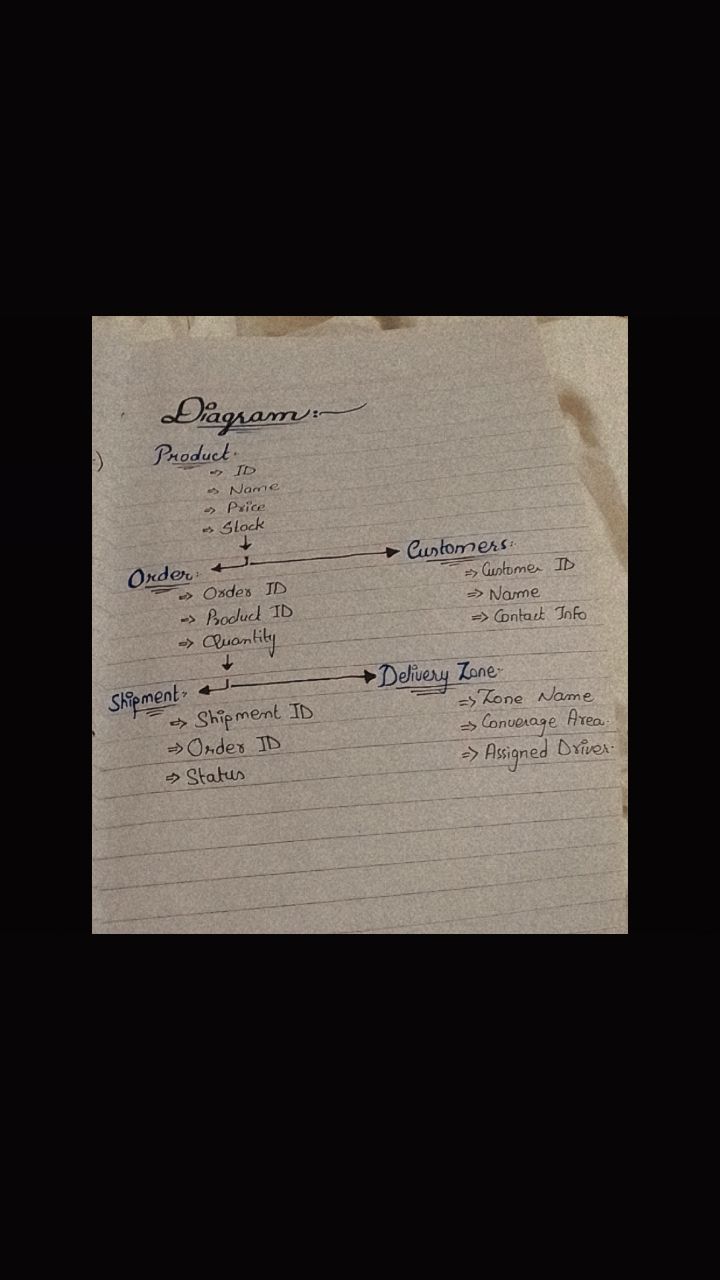 Diagram:-
Product.
⇒ ID
⇒ Name
⇒ Price
⇒ Stock
Order:
⇒ Order ID
⇒ Product ID
⇒ Quantity
Customers:
⇒ Customer ID
⇒ Name
⇒ Contact Info
Shipment:
⇒ Shipment ID
⇒ Order ID
⇒ Status
Delivery Zone.
⇒ Zone Name
⇒ Converage Area.
⇒ Assigned Driver.